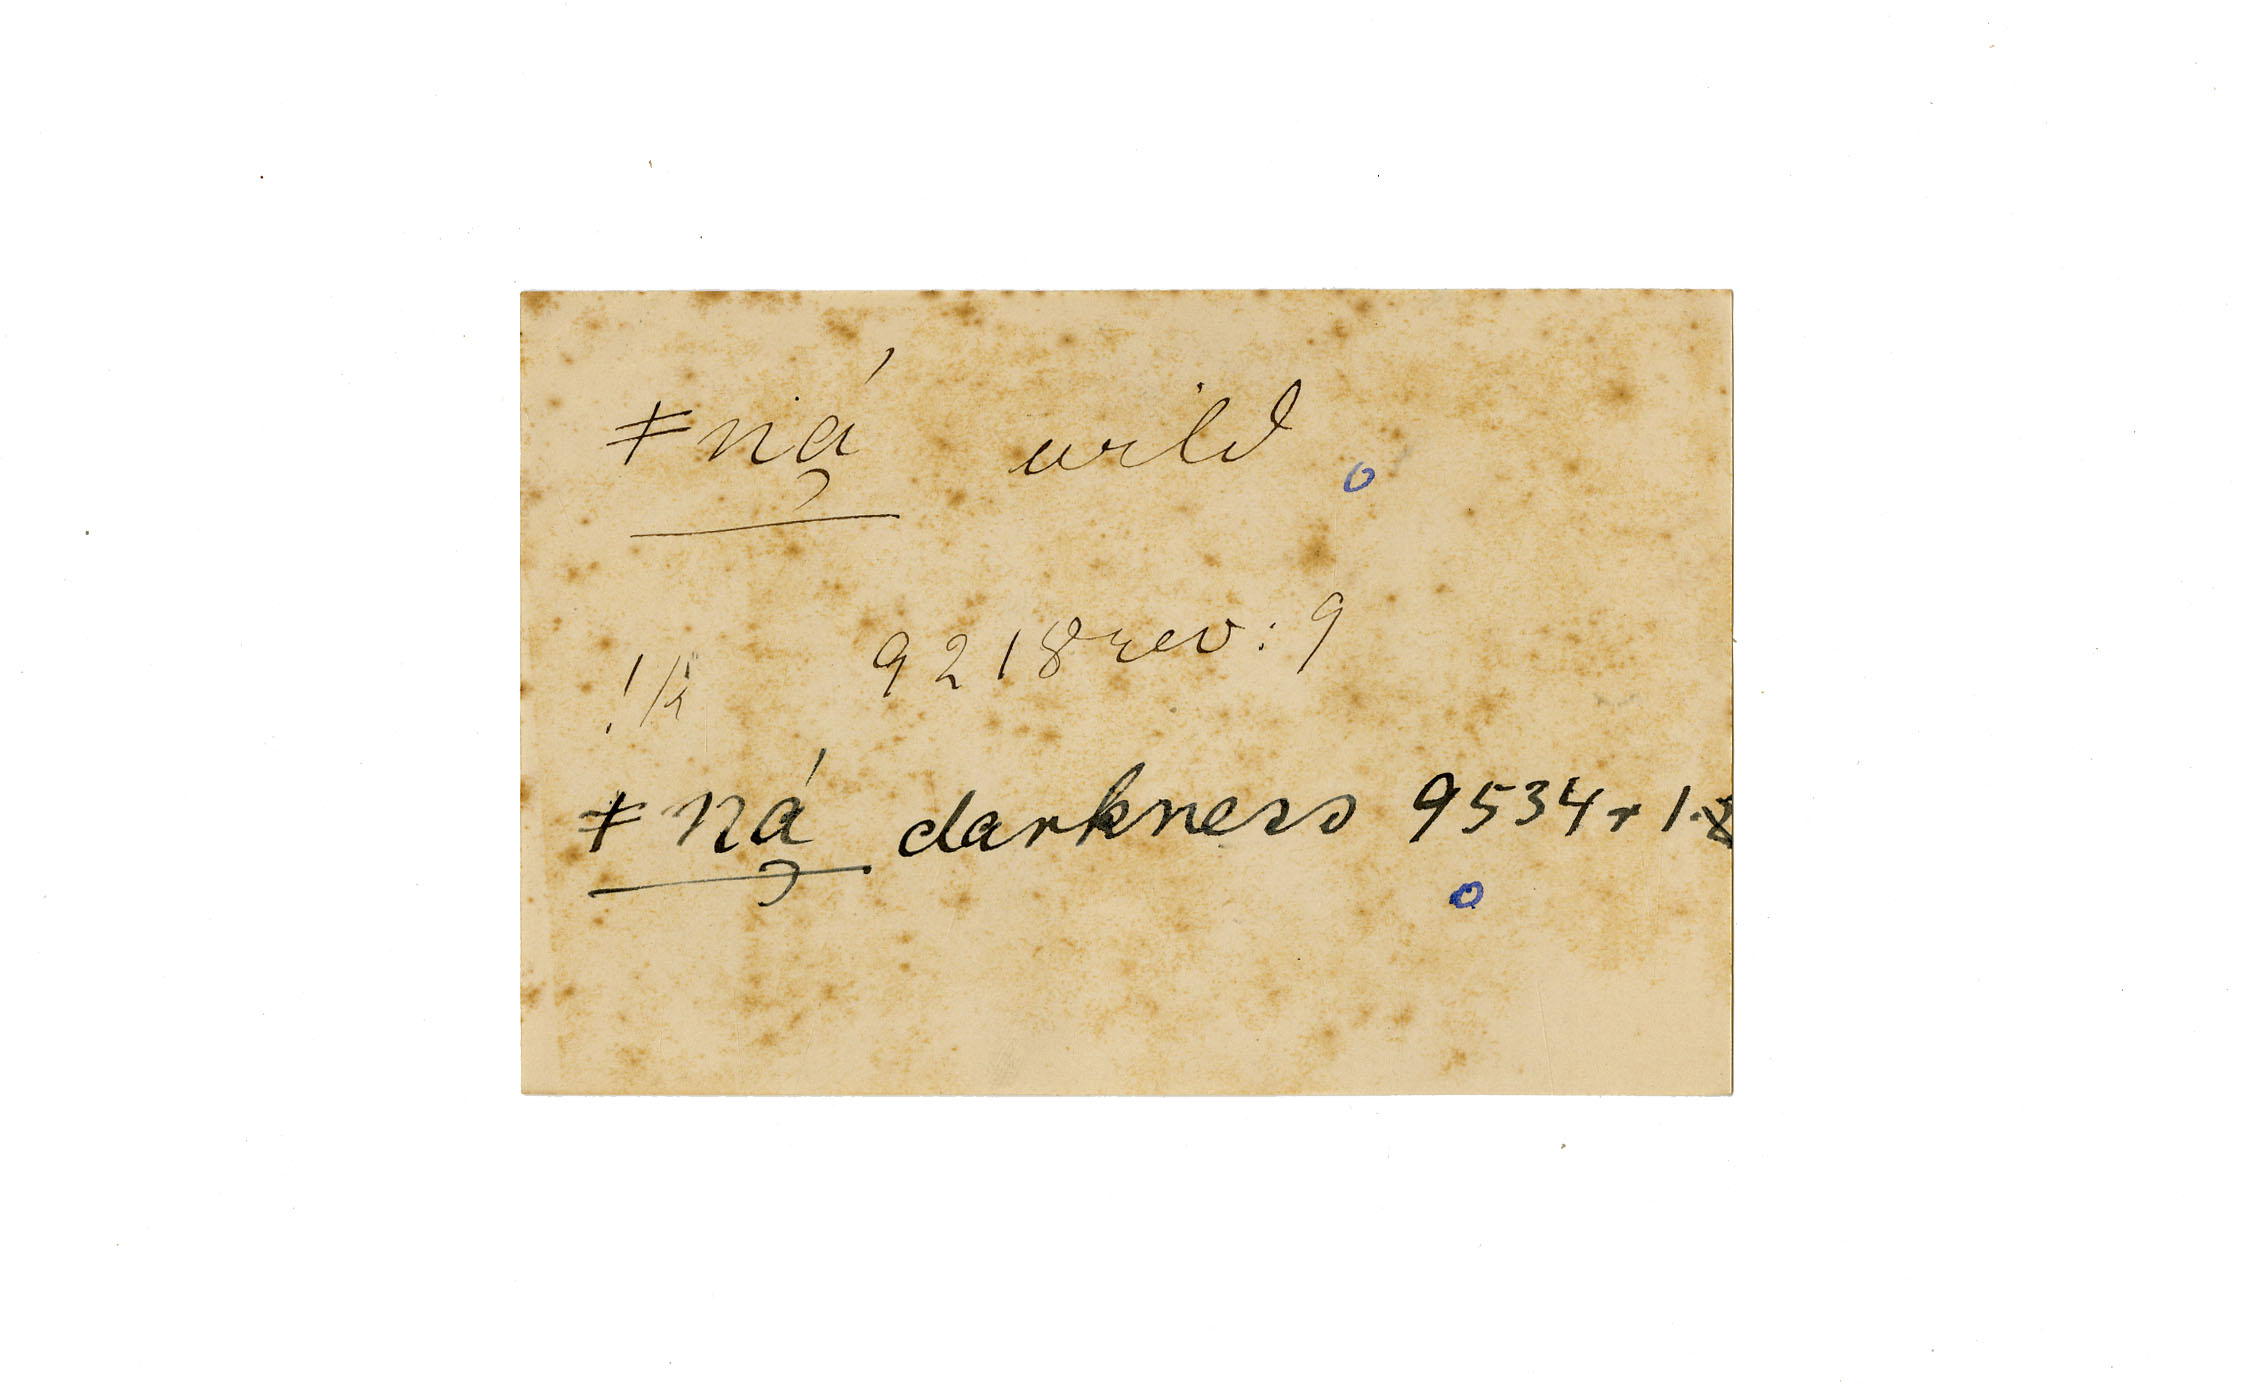 ǂná̜ wild
!k 9218 rev: 9
ǂná̜ darkness 9534 r 1.